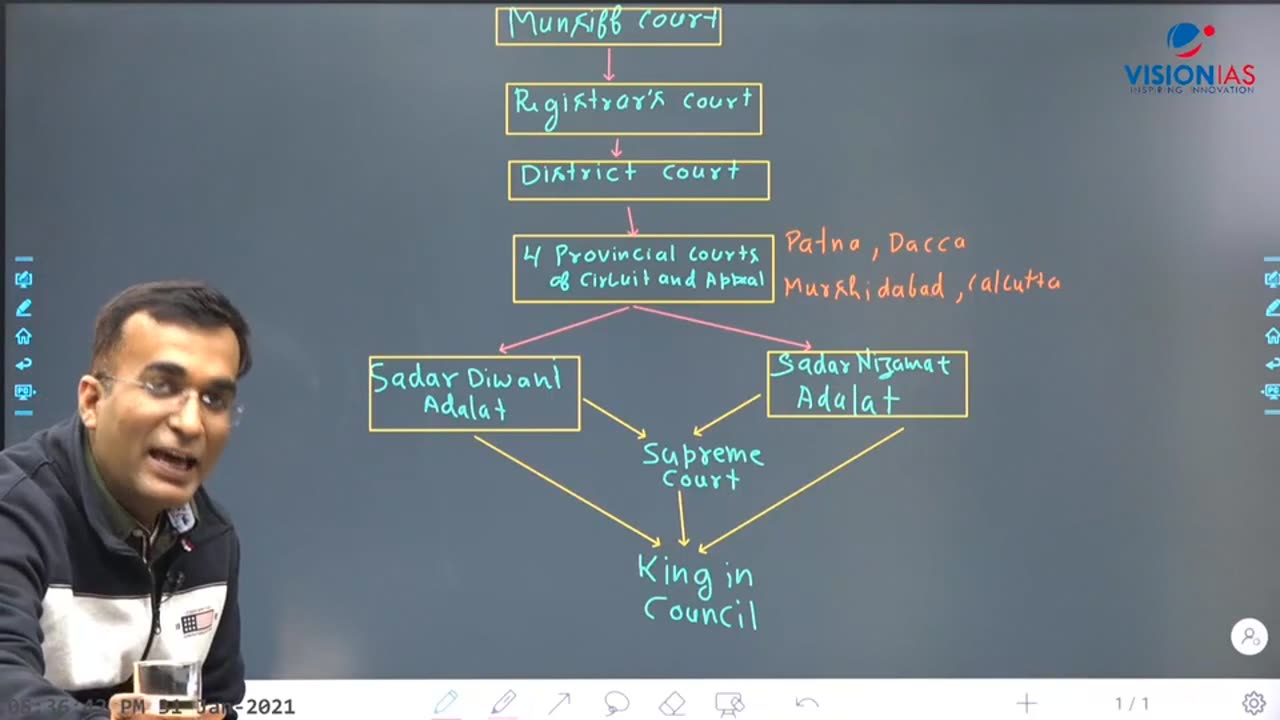 Munsiff Court
VISIONIAS
INSPIRING INNOVATION
Registrar's Court
District Court
4 Provincial Courts
of Circuit and Appeal
Patna, Dacca
Murshidabad, Calcutta
Sadar Diwani
Adalat
Sadar Nizamat
Adalat
Supreme
Court
King in
Council
05:36:42 PM 31 Jan-2021
1 / 1